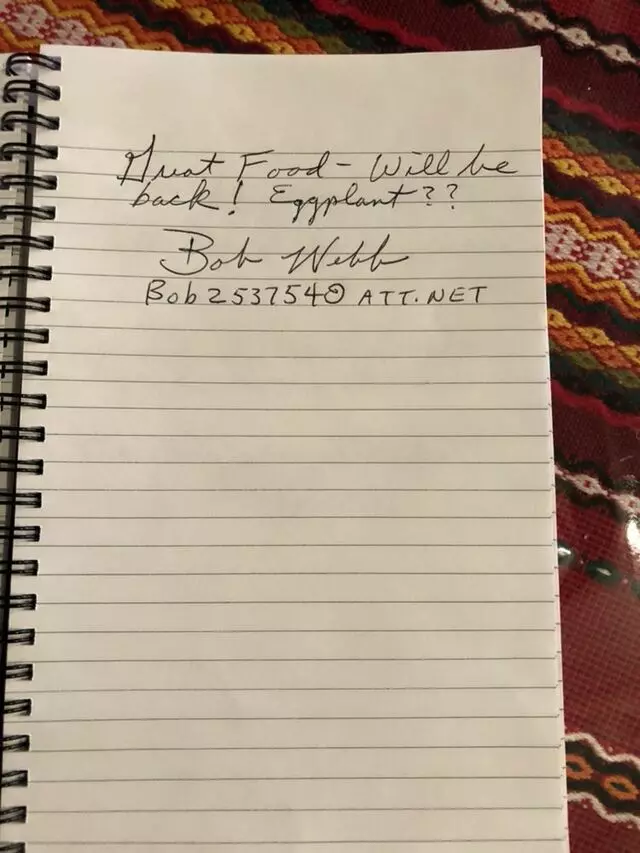 Great Food - Will be
back! Eggplant??
Bob Webb
Bob253754@ATT.NET